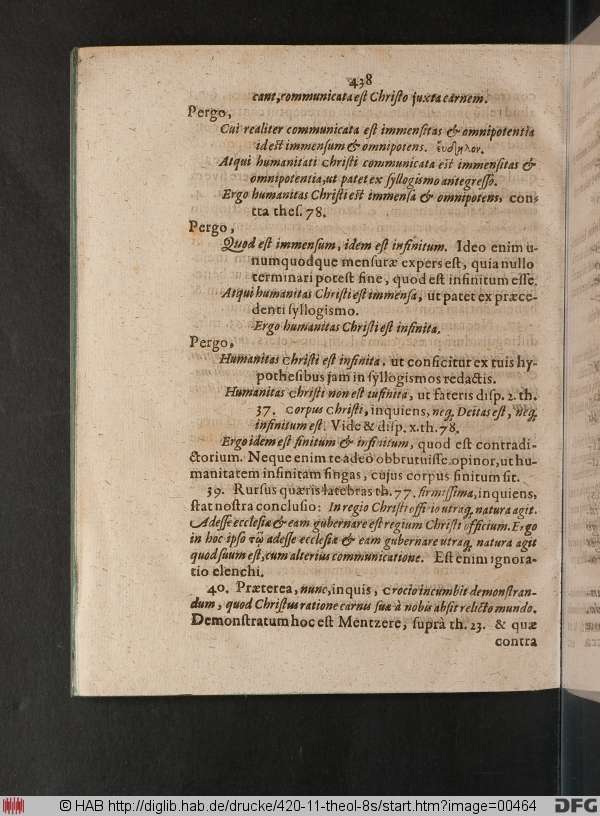 438
cant, communicata est Christo juxta carnem.
Pergo,
Cui realiter communicata est immensitas & omnipotentia
id est immensum & omnipotens. ἔυδηλον.
Atqui humanitati Christi communicata est immensitas &
omnipotentia, ut patet ex syllogismo antegresso.
Ergo humanitas Christi est immensa & omnipotens, con-
tra thes. 78.
Pergo,
Quod est immensum, idem est infinitum. Ideo enim u-
numquodque mensuræ expers est, quia nullo
terminari potest fine, quod est infinitum esse.
Atqui humanitas Christi est immensa, ut patet ex præce-
denti syllogismo.
Ergo humanitas Christi est infinita.
Pergo,
Humanitas Christi est infinita, ut conficitur ex tuis hy-
pothesibus jam in syllogismos redactis.
Humanitas Christi non est infinita, ut fateris disp. 2. th.
37. Corpus Christi, inquiens, neq; Deitas est, neq;
infinitum est. Vide & disp. x. th. 78.
Ergo idem est finitum & infinitum, quod est contradi-
ctorium. Neque enim te adeò obbrutuisse opinor, ut hu-
manitatem infinitam fingas, cujus corpus finitum sit.
39. Rursus quæris latebras th. 77. firmissima, inquiens,
stat nostra conclusio: In regio Christi officio utraq; natura agit.
Adesse ecclesiæ & eam gubernare est regium Christi officium. Ergo
in hoc ipso τῷ adesse ecclesiæ & eam gubernare utraq; natura agit
quod suum est, cum alterius communicatione. Est enim ignora-
tio elenchi.
40. Præterea, nunc, inquis, Crocio incumbit demonstran-
dum, quod Christus ratione carnis suæ à nobis absit relicto mundo.
Demonstratum hoc est Mentzere, suprà th. 23. & quæ
contra
© HAB http://diglib.hab.de/drucke/420-11-theol-8s/start.htm?image=00464
DFG